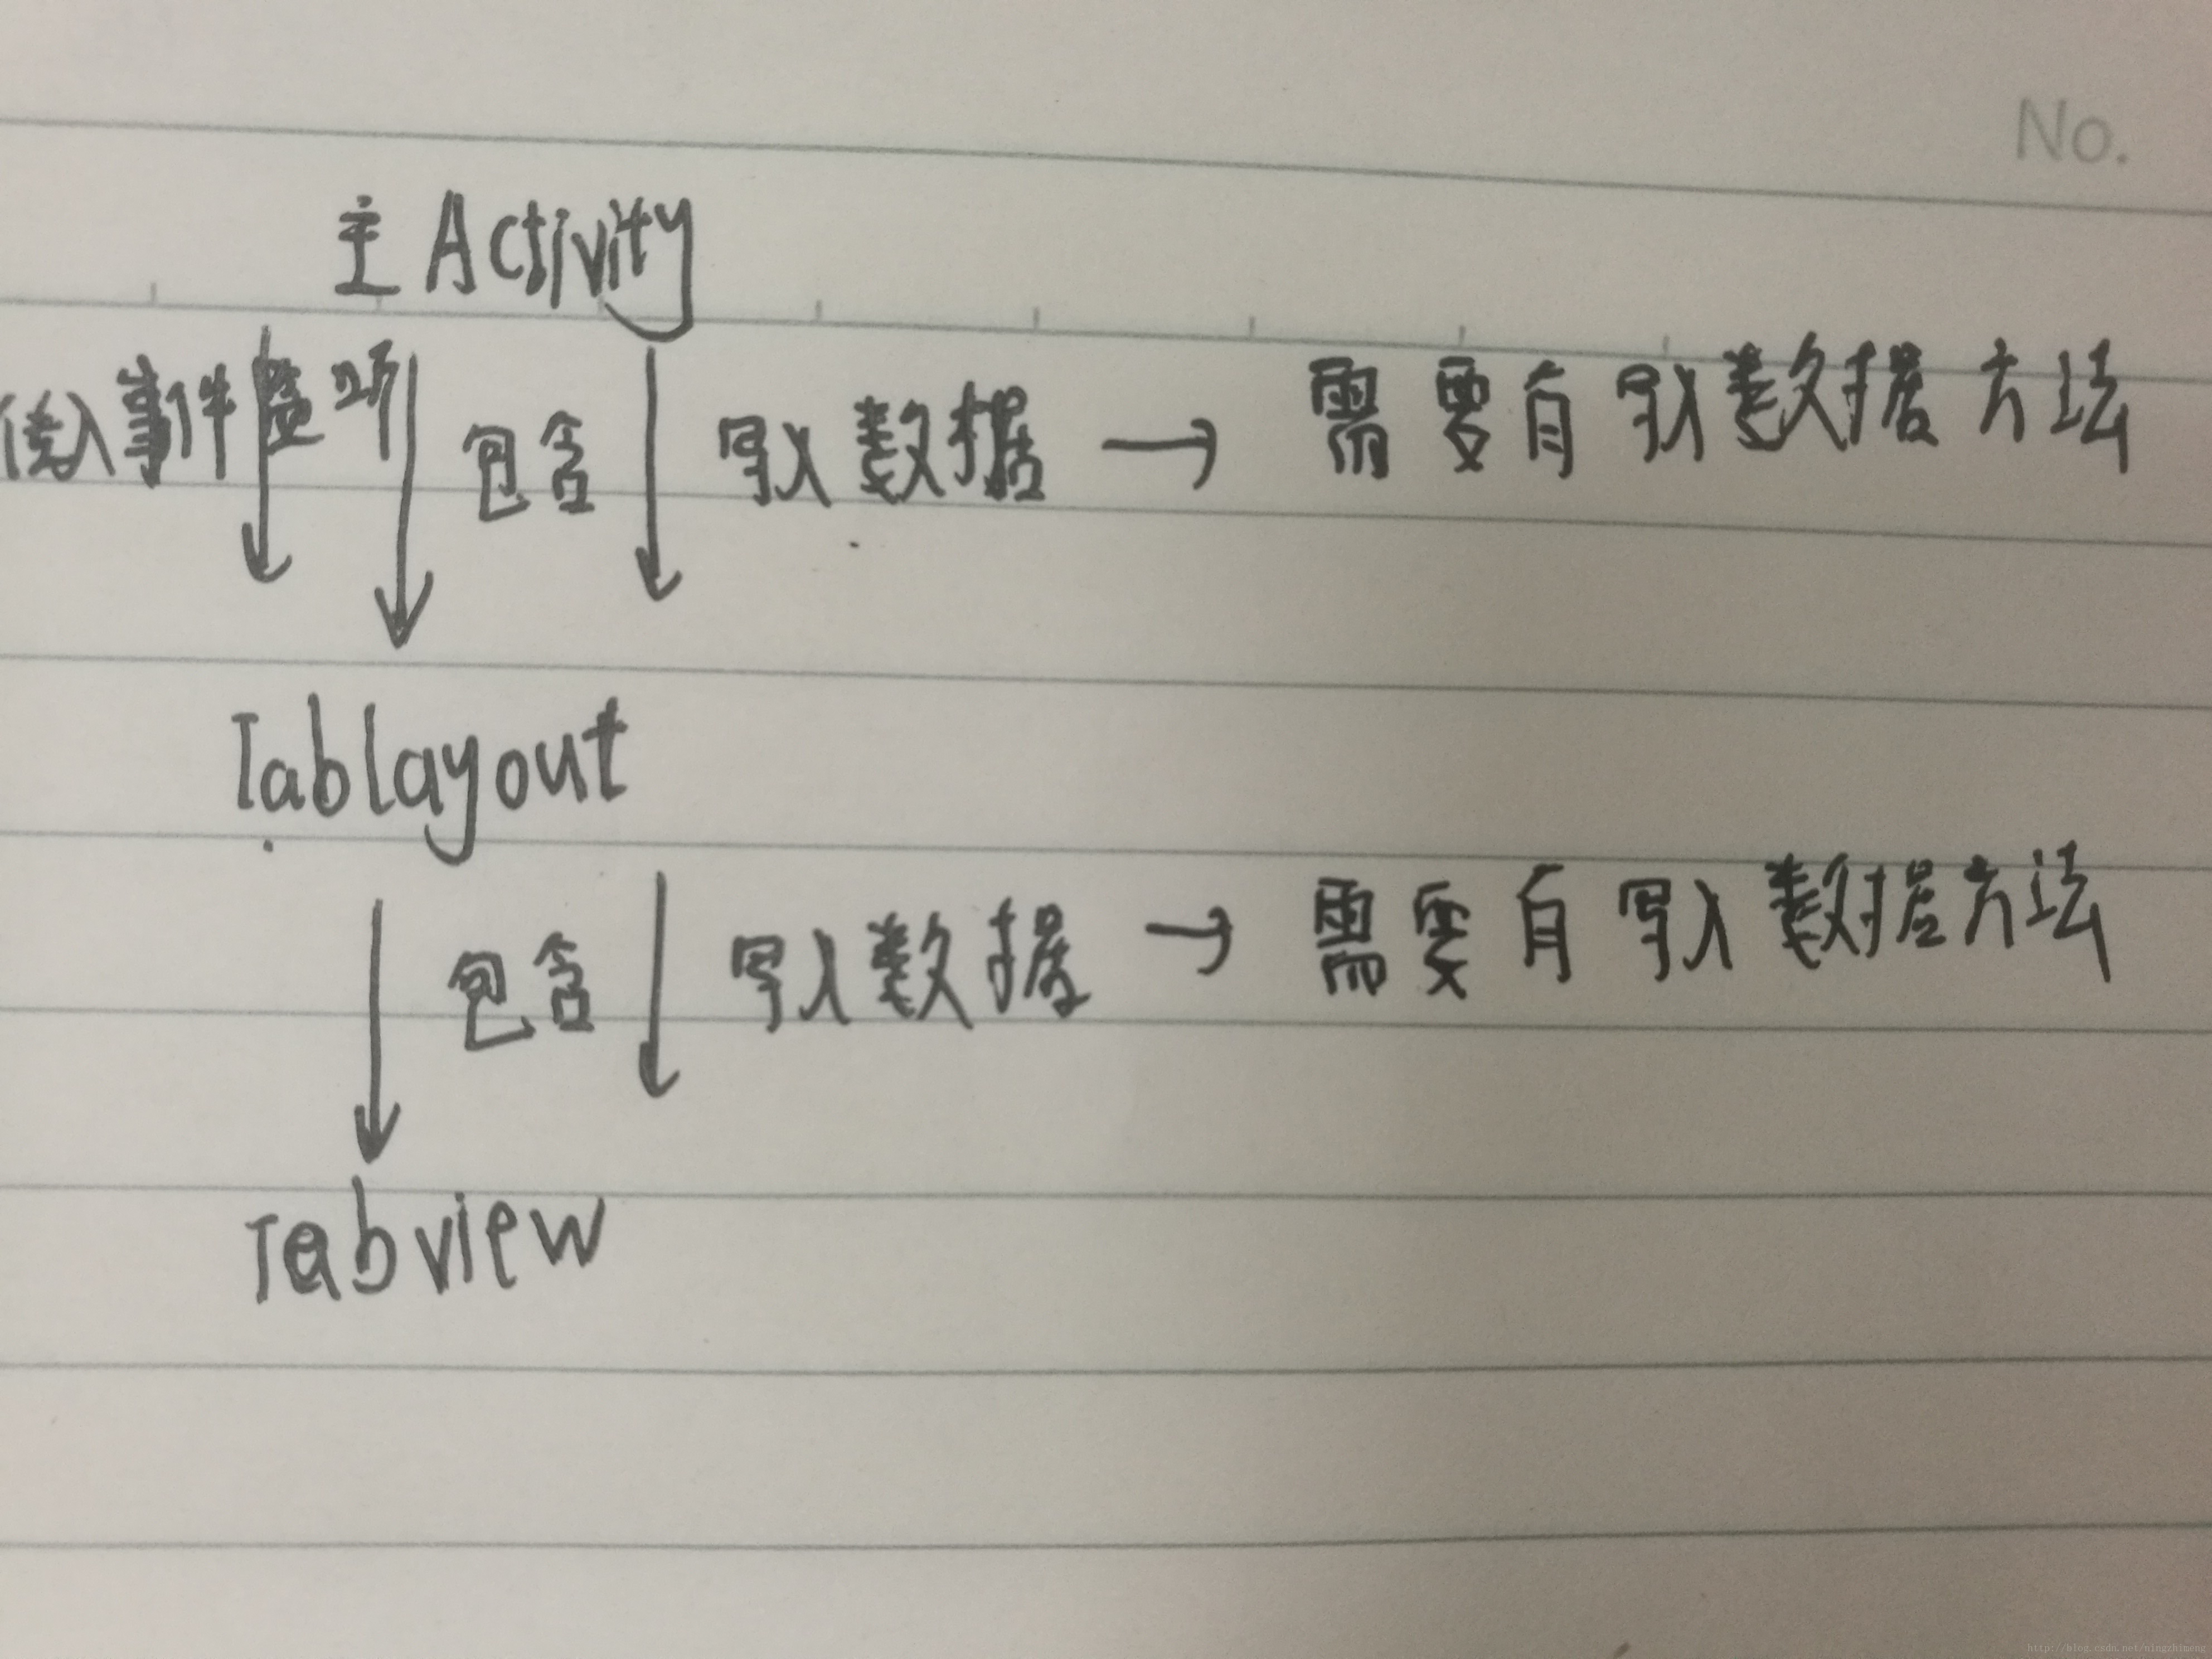 No.
主Activity
传入事件监听 包含 写入数据 → 需要有写入数据方法
Tablayout
包含 写入数据 → 需要有写入数据方法
Tabview
http://blog.csdn.net/ningzhimeng